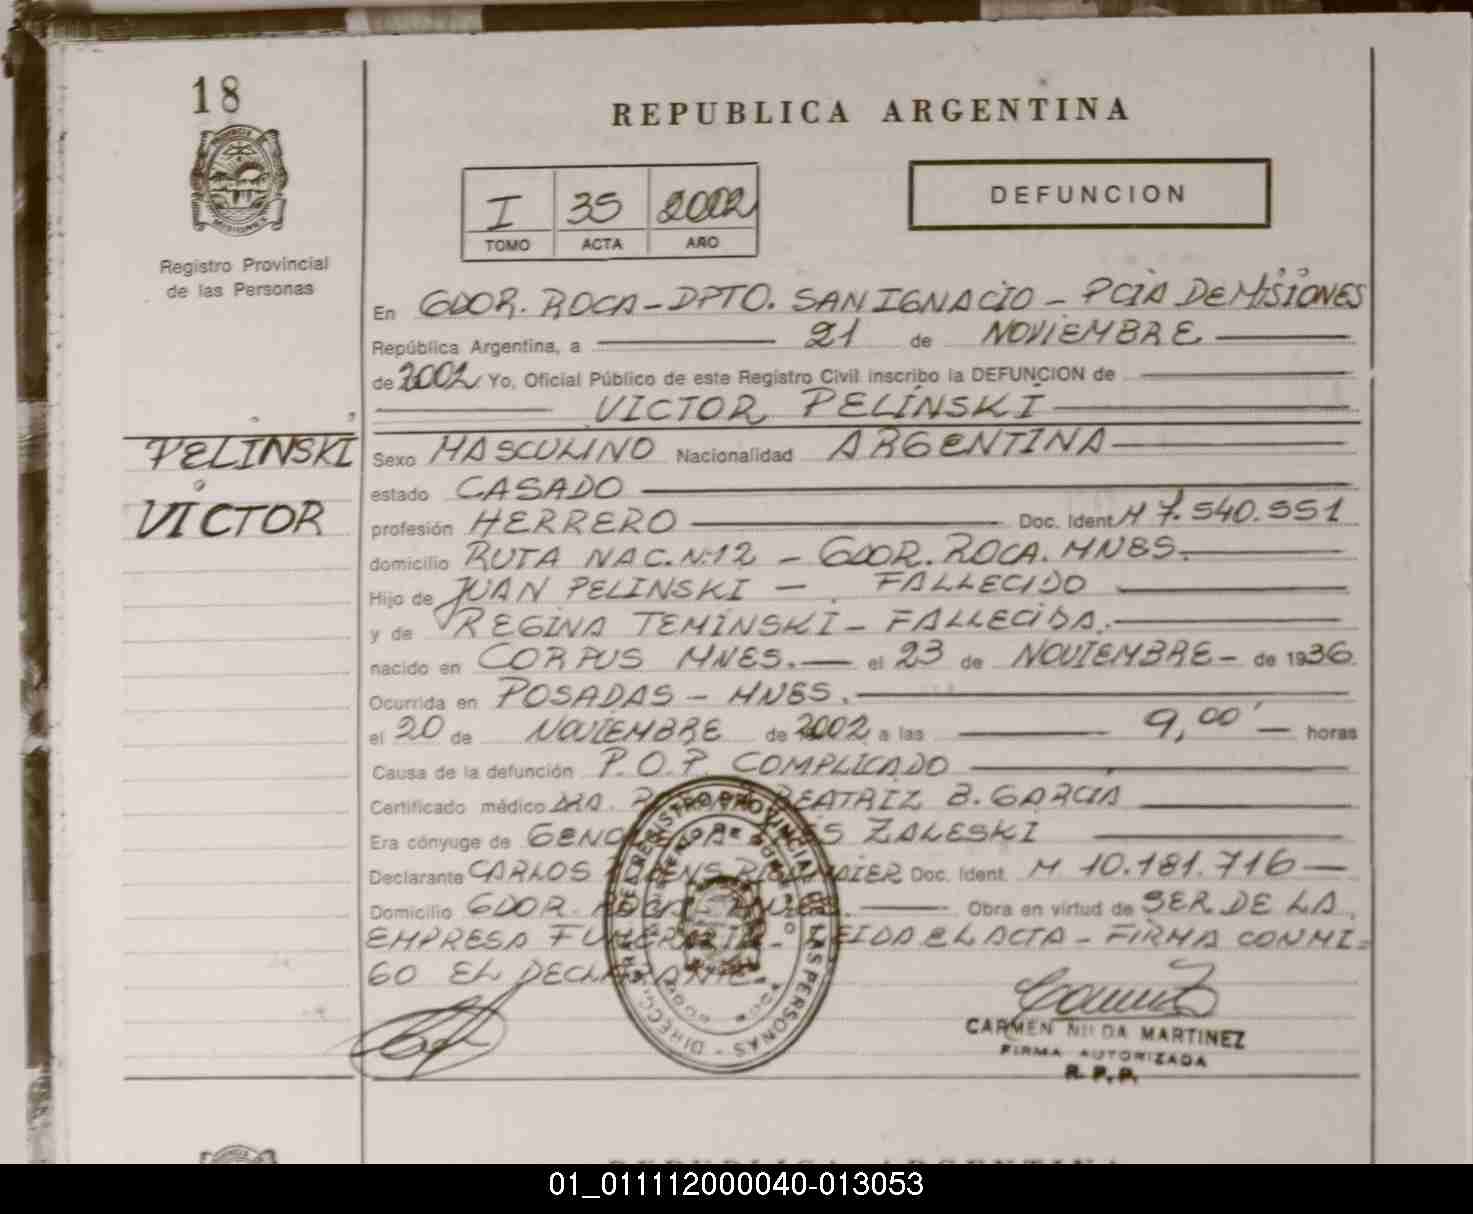 18
REPUBLICA ARGENTINA
I 35 2002
TOMO ACTA AÑO
DEFUNCION
Registro Provincial
de las Personas
En GDOR. ROCA - DPTO. SAN IGNACIO - PCIA DE MISIONES
República Argentina, a 21 de NOVIEMBRE
de 2002 Yo, Oficial Público de este Registro Civil inscribo la DEFUNCION de
VICTOR PELINSKI
PELINSKI
VICTOR
Sexo MASCULINO Nacionalidad ARGENTINA
estado CASADO
profesión HERRERO Doc. Ident. M 7.540.551
domicilio RUTA NAC. N:12 - GDOR. ROCA. MNES.
Hijo de JUAN PELINSKI - FALLECIDO
y de REGINA TEMINSKI - FALLECIDA.
nacido en CORPUS MNES. - el 23 de NOVIEMBRE - de 1936
Ocurrida en POSADAS - MNES.
el 20 de NOVIEMBRE de 2002 a las 9,00 - horas
Causa de la defunción P.O.P. COMPLICADO
Certificado médico DRA. BEATRIZ B. GARCIA
Era cónyuge de ZALESKI
Declarante CARLOS Doc. Ident. M 10.181.716
Domicilio GDOR. ROCA Obra en virtud de SER DE LA
EMPRESA FUNERARIA - LEIDA EL ACTA - FIRMA CONMI=
GO EL DECLARANTE.
DIRECC. GRAL. DEL REGISTRO PROVINCIAL DE LAS PERSONAS
CARMEN NILDA MARTINEZ
FIRMA AUTORIZADA
R. P. P.
REPUBLICA ARGENTINA
01_011112000040-013053